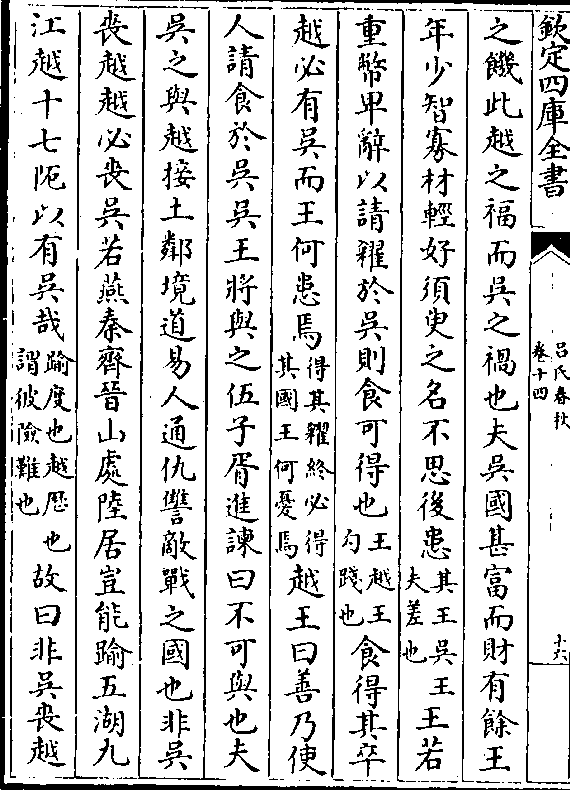 欽定四庫全書
呂氏春秋
卷十四
十六
之饑此越之福而吳之禍也夫吳國甚富而財有餘王
年少智寡材輕好須臾之名不思後患其王吳王夫差也王若
重幣卑辭以請糴於吳則食可得也王越王勾踐也食得其卒
越必有吳而王何患焉得其糴終必得其國王何憂焉越王曰善乃使
人請食於吳吳王將與之伍子胥進諫曰不可與也夫
吳之與越接土鄰境道易人通仇讐敵戰之國也非吳
喪越越必喪吳若燕秦齊晉山處陸居豈能踰五湖九
江越十七阨以有吳哉踰度也越歷也謂彼險難也故曰非吳喪越